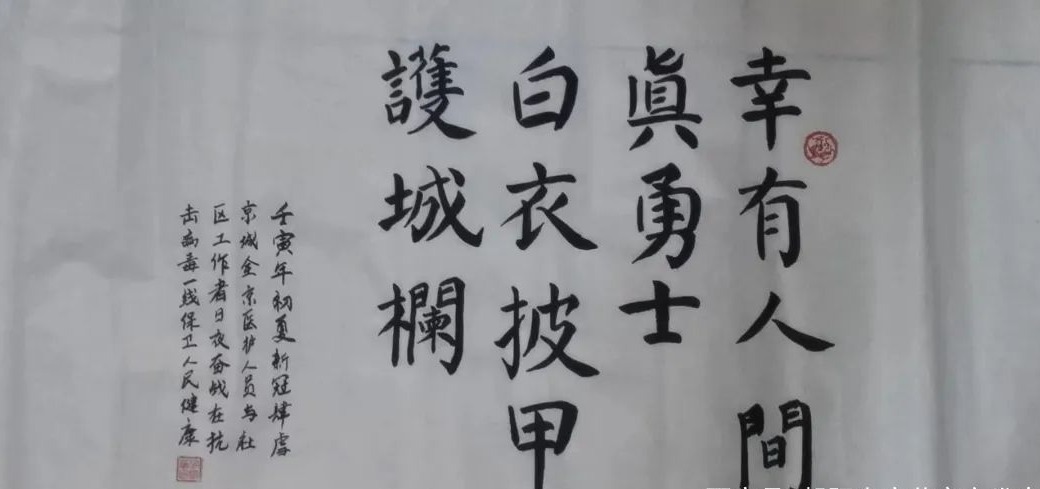 幸有人間
眞勇士
白衣披甲
護城欄
壬寅年初夏新冠肆虐
京城全京医护人员与社
区工作者日夜奋战在抗
击病毒一线保卫人民健康